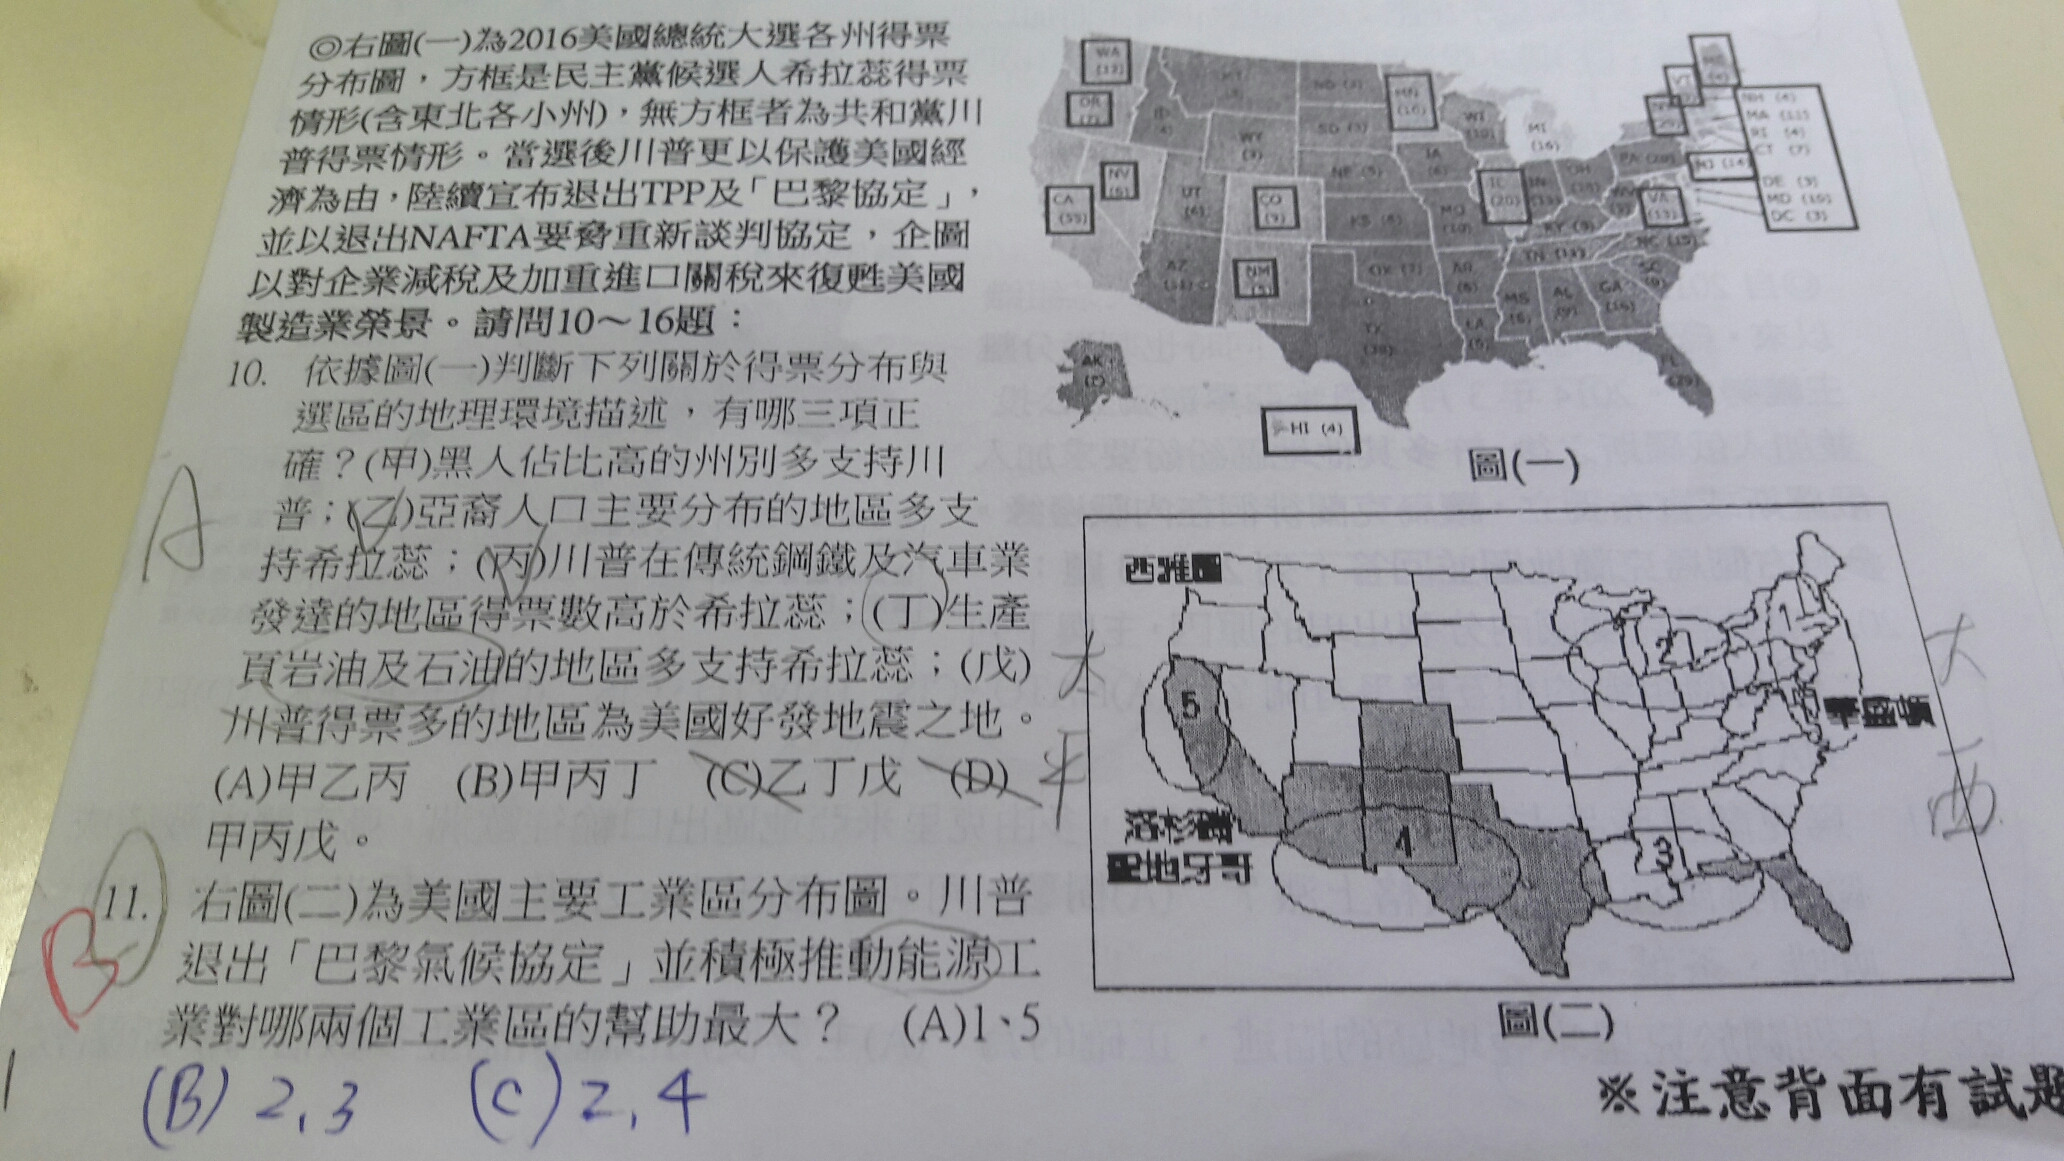 ◎右圖(一)為2016美國總統大選各州得票
分布圖，方框是民主黨候選人希拉蕊得票
情形(含東北各小州)，無方框者為共和黨川
普得票情形。當選後川普更以保護美國經
濟為由，陸續宣布退出TPP及「巴黎協定」，
並以退出NAFTA要脅重新談判協定，企圖
以對企業減稅及加重進口關稅來復甦美國
製造業榮景。請問10～16題：
10. 依據圖(一)判斷下列關於得票分布與
選區的地理環境描述，有哪三項正
確？(甲)黑人佔比高的州別多支持川
普；(乙)亞裔人口主要分布的地區多支
持希拉蕊；(丙)川普在傳統鋼鐵及汽車業
發達的地區得票數高於希拉蕊；(丁)生產
頁岩油及石油的地區多支持希拉蕊；(戊)
川普得票多的地區為美國好發地震之地。
(A)甲乙丙 (B)甲丙丁 (C)乙丁戊 (D)
甲丙戊。
A
11. 右圖(二)為美國主要工業區分布圖。川普
退出「巴黎氣候協定」並積極推動能源工
業對哪兩個工業區的幫助最大？ (A)1、5
B
(B) 2,3 (C) 2,4
WA
(12)
OR
(7)
CA
(55)
NV
(6)
ID
(4)
UT
(6)
AZ
(11)
WY
(3)
CO
(9)
NM
(5)
ND (3)
SD (3)
NE (5)
KS (6)
OK (7)
TX
(38)
MN
(10)
IA
(6)
MO
(10)
AR
(6)
LA
(8)
WI
(10)
IL
(20)
MI
(16)
IN
(11)
OH
(18)
KY (8)
TN (11)
MS
(6)
AL
(9)
GA
(16)
FL
(29)
SC
(9)
NC (15)
VA
(13)
PA (20)
NJ (14)
VT
ME
(4)
NH (4)
MA (11)
RI (4)
CT (7)
DE (3)
MD (10)
DC (3)
AK
(3)
HI (4)
圖(一)
西雅圖
1
2
3
4
5
大
平
大
西
圖(二)
※注意背面有試題